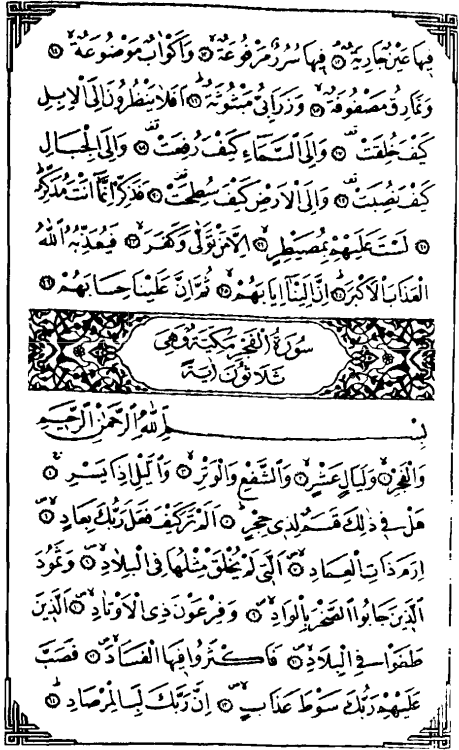 فِيهَا عَيْنٌ جَارِيَةٌ ﴿١٢﴾ فِيهَا سُرُرٌ مَرْفُوعَةٌ ﴿١٣﴾ وَاَكْوَابٌ مَوْضُوعَةٌ ﴿١٤﴾
وَنَمَارِقُ مَصْفُوفَةٌ ﴿١٥﴾ وَزَرَابِيُّ مَبْثُوثَةٌ ﴿١٦﴾ اَفَلَا يَنْظُرُونَ اِلَى الْاِبِلِ
كَيْفَ خُلِقَتْ ﴿١٧﴾ وَاِلَى السَّمَاءِ كَيْفَ رُفِعَتْ ﴿١٨﴾ وَاِلَى الْجِبَالِ
كَيْفَ نُصِبَتْ ﴿١٩﴾ وَاِلَى الْاَرْضِ كَيْفَ سُطِحَتْ ﴿٢٠﴾ فَذَكِّرْ اِنَّمَا اَنْتَ مُذَكِّرٌ
﴿٢١﴾ لَسْتَ عَلَيْهِمْ بِمُصَيْطِرٍ ﴿٢٢﴾ اِلَّا مَنْ تَوَلّٰى وَكَفَرَ ﴿٢٣﴾ فَيُعَذِّبُهُ اللّٰهُ
الْعَذَابَ الْاَكْبَرَ ﴿٢٤﴾ اِنَّ اِلَيْنَا اِيَابَهُمْ ﴿٢٥﴾ ثُمَّ اِنَّ عَلَيْنَا حِسَابَهُمْ ﴿٢٦﴾
سُورَةُ الْفَجْرِ مَكِّيَّةٌ وَهِيَ
ثَلَاثُونَ اٰيَةً
بِسْمِ اللّٰهِ الرَّحْمٰنِ الرَّحِيمِ
وَالْفَجْرِ ﴿١﴾ وَلَيَالٍ عَشْرٍ ﴿٢﴾ وَالشَّفْعِ وَالْوَتْرِ ﴿٣﴾ وَالَّيْلِ اِذَا يَسْرِ ﴿٤﴾
هَلْ فِي ذٰلِكَ قَسَمٌ لِذِي حِجْرٍ ﴿٥﴾ اَلَمْ تَرَ كَيْفَ فَعَلَ رَبُّكَ بِعَادٍ ﴿٦﴾
اِرَمَ ذَاتِ الْعِمَادِ ﴿٧﴾ اَلَّتِي لَمْ يُخْلَقْ مِثْلُهَا فِي الْبِلَادِ ﴿٨﴾ وَثَمُودَ
الَّذِينَ جَابُوا الصَّخْرَ بِالْوَادِ ﴿٩﴾ وَفِرْعَوْنَ ذِي الْاَوْتَادِ ﴿١٠﴾ اَلَّذِينَ
طَغَوْا فِي الْبِلَادِ ﴿١١﴾ فَاَكْثَرُوا فِيهَا الْفَسَادَ ﴿١٢﴾ فَصَبَّ
عَلَيْهِمْ رَبُّكَ سَوْطَ عَذَابٍ ﴿١٣﴾ اِنَّ رَبَّكَ لَبِالْمِرْصَادِ ﴿١٤﴾